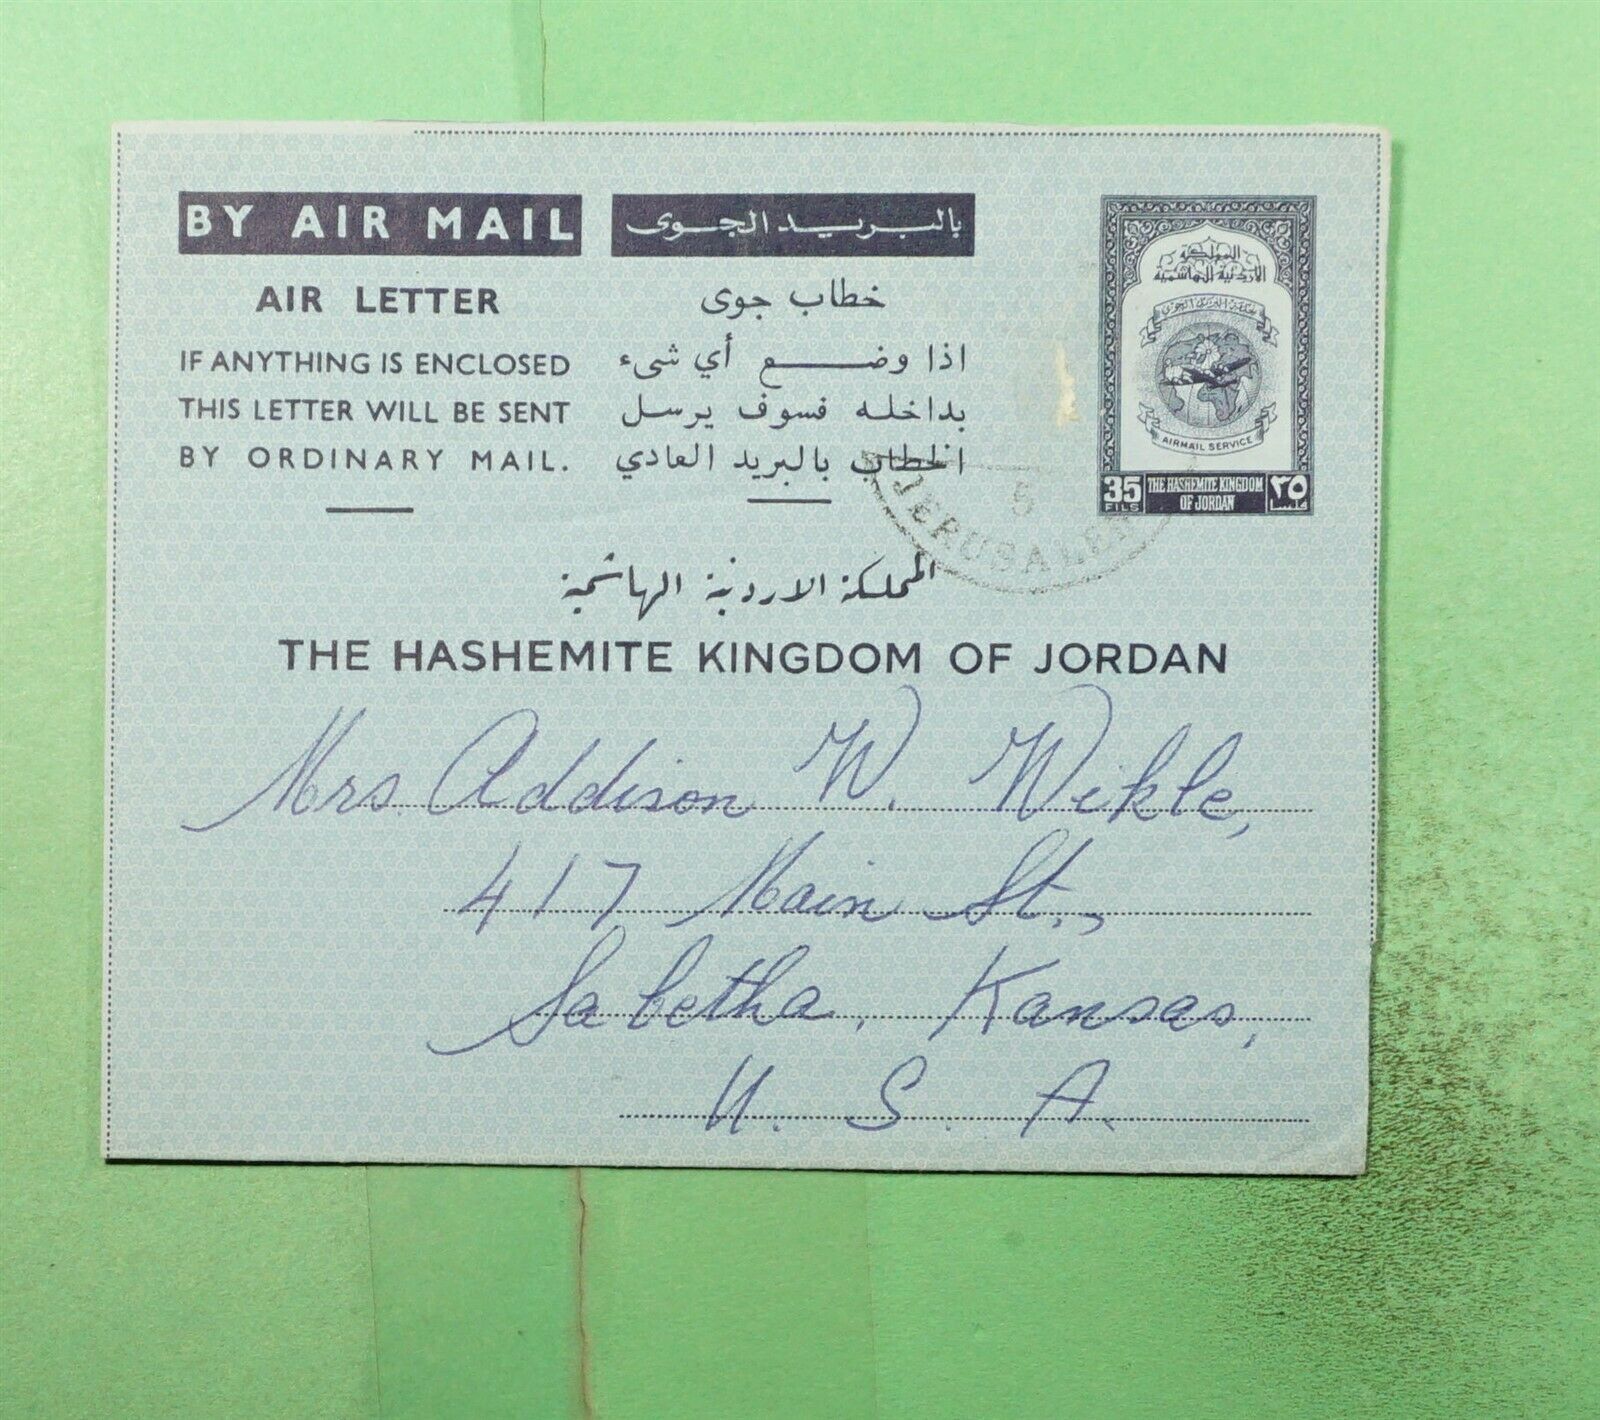 BY AIR MAIL
بالبريد الجوى
AIR LETTER
خطاب جوى
IF ANYTHING IS ENCLOSED
THIS LETTER WILL BE SENT
BY ORDINARY MAIL.
اذا وضع أي شىء
بداخله فسوف يرسل
الخطاب بالبريد العادي
المملكة
الاردنية الهاشمية
AIRMAIL SERVICE
35
FILS
THE HASHEMITE KINGDOM
OF JORDAN
٣٥
فلسا
5
JERUSALEM
المملكة الاردنية الهاشمية
THE HASHEMITE KINGDOM OF JORDAN
Mrs. Addison W. Wikle,
417 Main St.,
Sabetha, Kansas,
U. S. A.